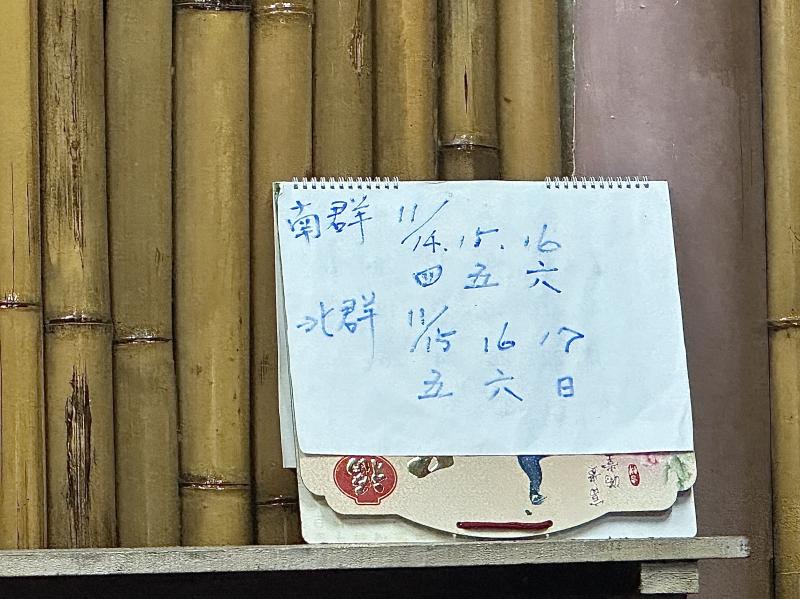 南群 11/14. 15. 16
四 五 六
北群 11/15 16 17
五 六 日